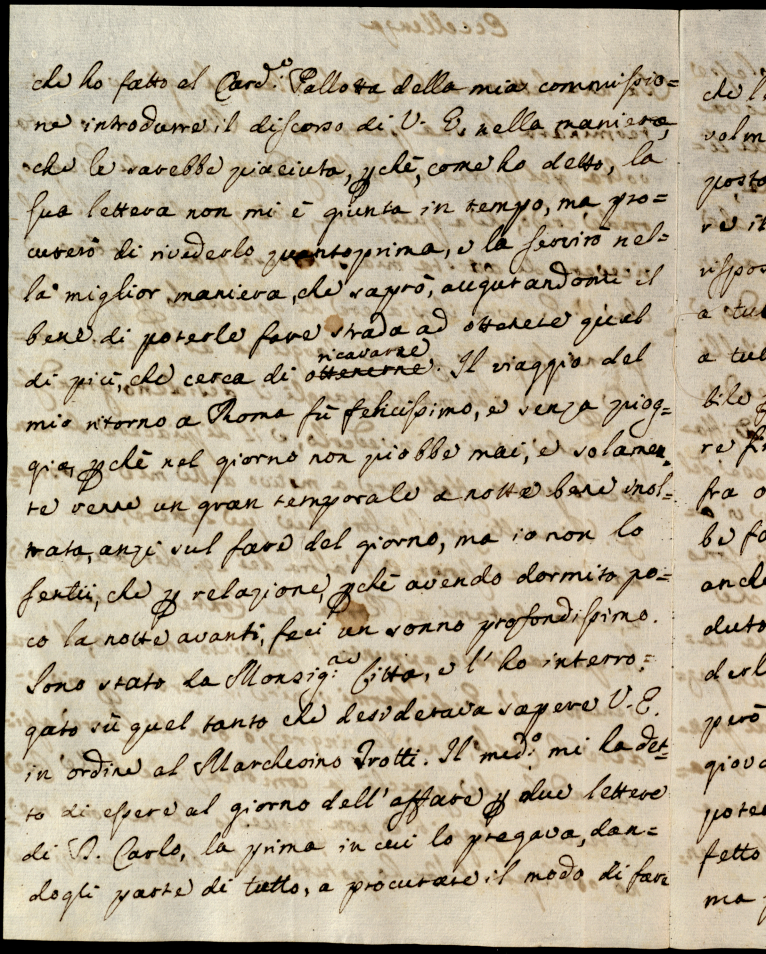 che ho fatto al Card.e Pallotta della mia commissio=
ne introdurre il discorso di V. E. nella maniera,
che le sarebbe piaciuta, pchè, come ho detto, la
sua lettera non mi è giunta in tempo, ma pro=
curerò di rivederlo quantoprima, e la servirò nel=
la miglior maniera, che saprò, augurandomi il
bene di poterle fare strada ad ottenere quel
di più, che cerca di ottenerne ricavarne. Il viaggio del
mio ritorno a Roma fù felicissimo, e senza piog=
gia, pchè nel giorno non piobbe mai, e solamen=
te venne un gran temporale a notte bene inol=
trata, anzi sul fare del giorno, ma io non lo
sentii, che p relazione, pchè avendo dormito po=
co la notte avanti, feci un sonno profondissimo.
Sono stato da Monsig.r Citta, e l'ho interro=
gato sù quel tanto che desiderava sapere V. E.
in ordine al Marchesino Trotti. Il med.o mi ha det=
to di essere al giorno dell'affare p due lettere
di D. Carlo, la prima in cui lo pregava, dan=
dogli parte di tutto, a procurare il modo di fare